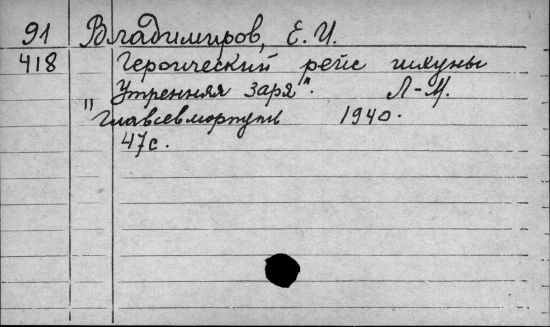 91 Владимиров, Е. И.
418 Героический рейс шхуны
„Утренняя заря". Л-М.
Главсевморпуть 1940.
47с.